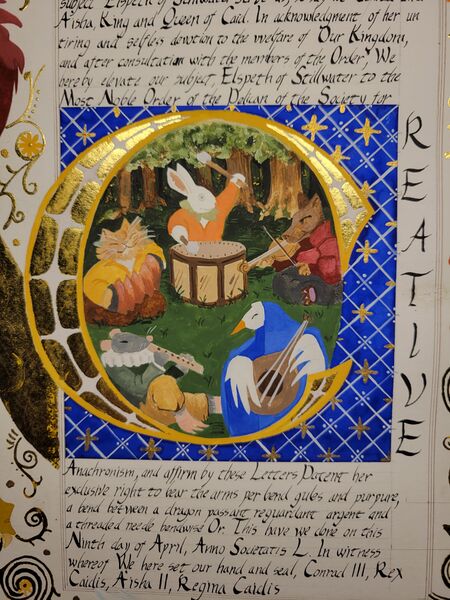 subject Elspeth of Stillwater
Aisha, King and Queen of Caid. In acknowledgment of her un
tiring and selfless devotion to the welfare of Our Kingdom,
and after consultation with the members of the Order, We
hereby elevate our subject, Elspeth of Stillwater to the
Most Noble Order of the Pelican of the Society for
CREATIVE
Anachronism, and affirm by these Letters Patent her
exclusive right to bear the arms per bend gules and purpure,
a bend between a dragon passant reguardant argent and
a threaded neede bendwise Or. This have we done on this
Ninth day of April, Anno Societatis L. In witness
whereof We here set our hand and seal, Conrad III, Rex
Caidis, Aisha II, Regina Caidis